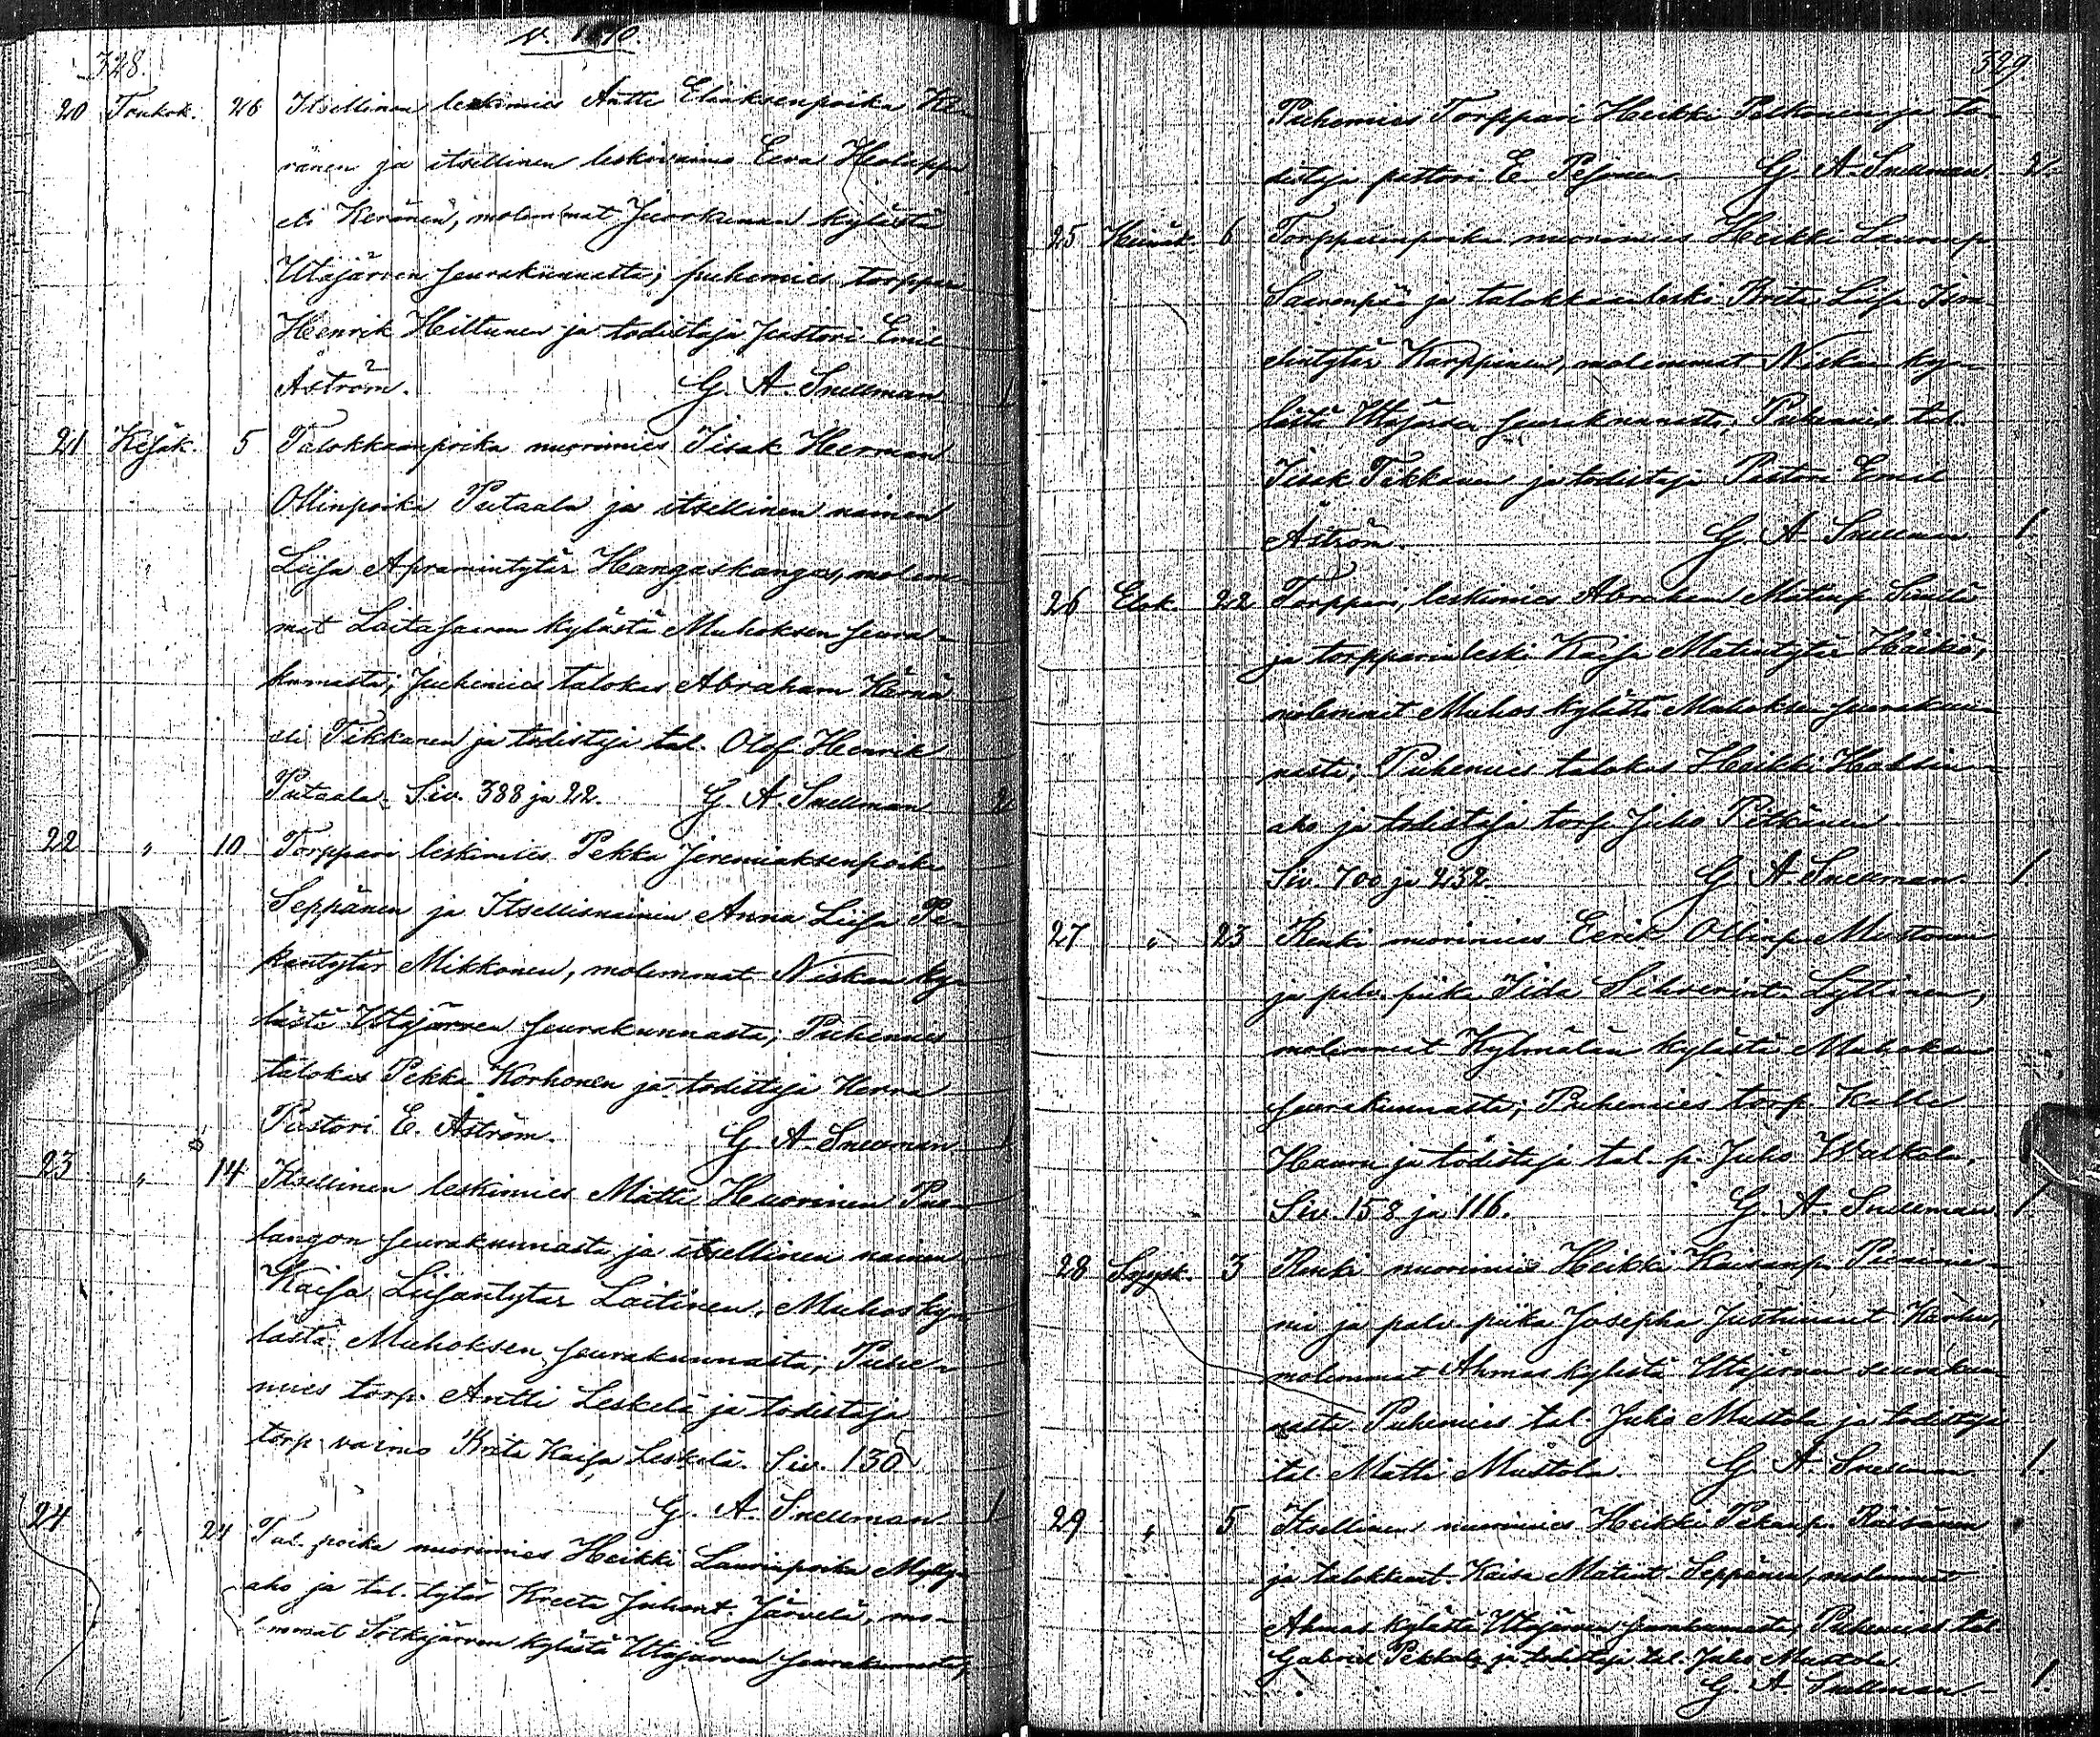 328.
20 Toukok. 26 Itsellinen leskimies Antti Eliaksenpoika Ke-
ränen ja itsellinen leskivaimo Eeva
eli Keränen, molemmat Juorkunan kylästä
Utajärven seurakunnasta; puhemies torppar
Henrik Hiltunen ja todistaja pastori Emil
Åström. G. A. Snellman 1
21 Kesäk. 5 Talokkaanpoika nuorimies Iisak Herman
Ollinpoika Putaala ja itsellinen nainen
Liisa Apramintytär Hangaskangas, molem-
mat Laitasaaren kylästä Muhoksen seura-
kunnasta; puhemies talokas Abraham Kärnä
eli Tikkanen ja todistaja tal. Olof Henrik
Putaala. Siv. 388 ja 22. G. A. Snellman 2
22 " 10 Torppari leskimies Pekka Jeremiaksenpoika
Seppänen ja Itsellisnainen Anna Liisa Pe-
kantytär Mikkonen, molemmat Niskan ky-
lästä Utajärven seurakunnasta; Puhemies
talokas Pekka Korhonen ja todistaja Herra
Pastori E. Åström. G. A. Snellman 1
23 " 14 Itsellinen leskimies Matti Huovinen Puo-
langon seurakunnasta ja itsellinen nainen
Kaisa Liisantytär Laitinen, Muhos ky-
lästä Muhoksen seurakunnasta; Puhe-
mies torp. Antti Leskelä ja todistaja
torp. vaimo Brita Kaisa Leskelä. Siv. 130
G. A. Snellman 1
24 " 24 Tal. poika nuorimies Heikki Laurinpoika Mylly-
aho ja tal. tytär Kreeta Juhont. Järvelä, mo-
lemmat Sotkajärven kylästä Utajärven seurakunnasta,
329
Puhemies Torppari Heikki Pelkonen ja to-
distaja pastori E. Pesonen G. A. Snellman 2.
25 Heinäk. 6 Torpparinpoika nuorimies Heikki Laurinp.
Saarenpää ja talokkaanleski Brita Liisa Ison-
Karppinen, molemmat Niskan ky-
lästä Utajärven seurakunnasta; Puhemies tal.
Iisak Tikkanen ja todistaja Pastori Emil
Åström. G. A. Snellman 1.
26 Elok. 22 Torppari, leskimies Abraham Matinp.
ja torpparinleski Kaisa Matintytär Häikiö,
molemmat Muhos kylästä Muhoksen seurakun-
nasta; Puhemies talokas Heikki
aho ja todistaja torp. Juho Pitkänen
Siv. 700 ja 232. G. A. Snellman. 1.
27 " 23 Renki nuorimies Eerik Ollinp. Mustonen
ja palv. piika Iida Lyttinen,
molemmat Kylmälän kylästä Muhoksen
seurakunnasta; Puhemies torp. Kalle
Hauru ja todistaja tal. p. Juho Walkola.
Siv. 158 ja 116. G. A. Snellman 1.
28 Syysk. 3 Renki nuorimies Heikki Kaisanp.
ja palv. piika Josepha Justiinant. Karhu,
molemmat Ahmas kylästä Utajärven seurakun-
nasta. Puhemies tal. Juho Mustola ja todistaja
tal. Matti Mustola. G. A. Snellman 1.
29 " 5 Itsellinen nuorimies Heikki Pekanp. Räisänen
ja talokkant. Kaisa Matint. Seppänen, molemmat
Ahmas kylästä Utajärven seurakunnasta, Puhemies tal.
Gabriel Pekkala ja todistaja tal. Juho Mustola
G. A. Snellman 1.